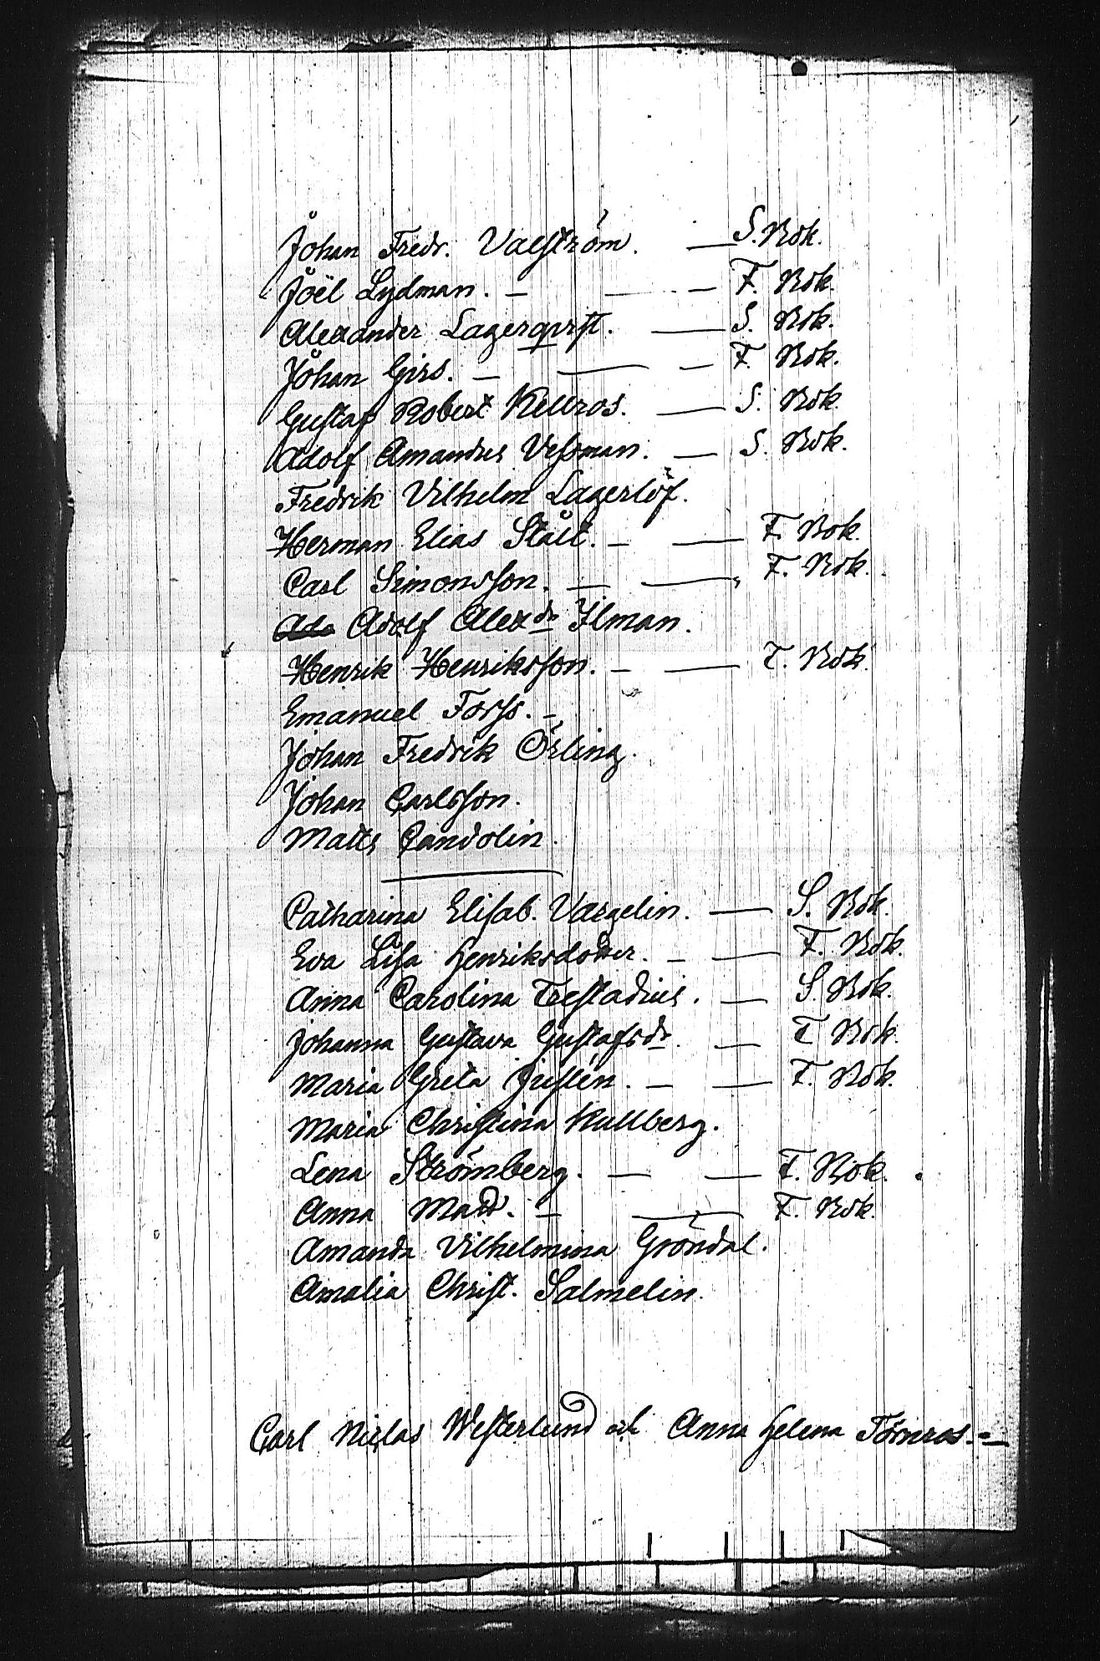 Johan Fredr. Valström. — S. Bok.
Joël Lydman. — — F. Bok.
Alexander Lagerqvist. — S. Bok.
Johan Girs. — — F. Bok.
Gustaf Robert Kellros. — S. Bok.
Adolf Amandus Vessman. — S. Bok.
Fredrik Vilhelm Lagerlöf.
Herman Elias Ståil. — — F. Bok.
Carl Simonsson. — — F. Bok.
Adolf Alexdr Ilman.
Henrik Henriksson. — — F. Bok.
Emanuel Forss. —
Johan Fredrik Örling.
Johan Carlsson.
Matts Candolin.
Catharina Elisab. Vargelin. — S. Bok.
Eva Lisa Henriksdotter. — — F. Bok.
Anna Carolina Trestadius. — S. Bok.
Johanna Gustava Gustafsdr. — F. Bok.
Maria Greta Justén. — — F. Bok.
Maria Christina Kullberg.
Lena Strömberg. — — F. Bok.
Anna Mard. — — F. Bok.
Amanda Vilhelmina Gröndal.
Amalia Christ. Salmelin.
Carl Niclas Westerlund och Anna Helena Törnros. —